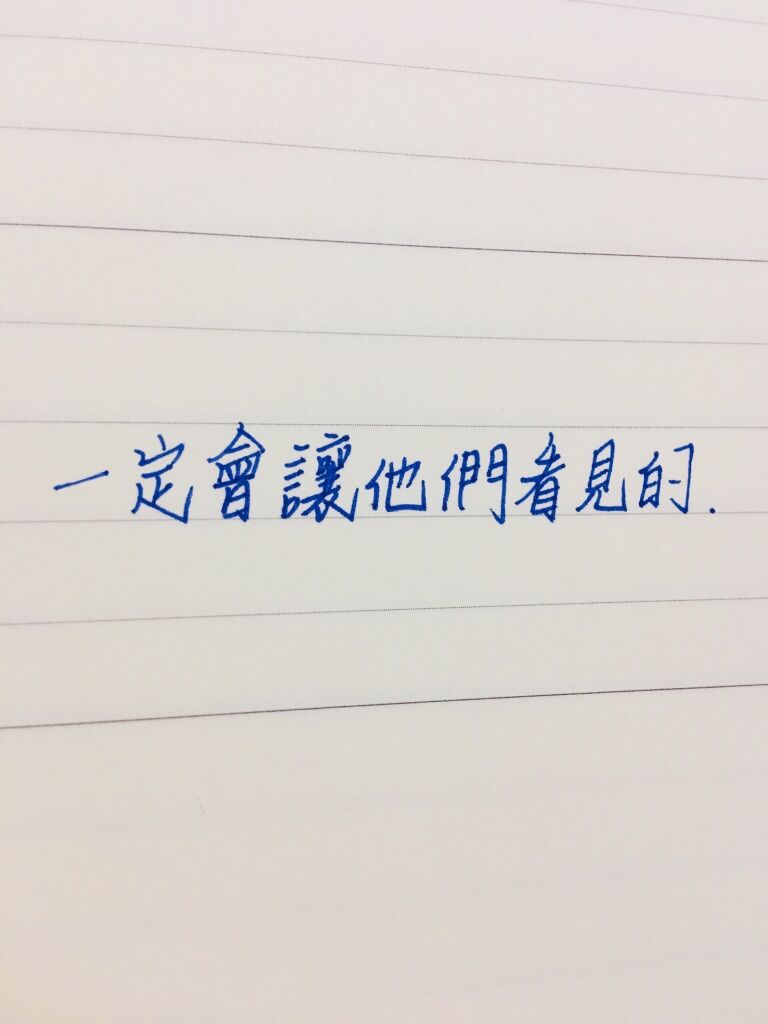 一定會讓他們看見的.